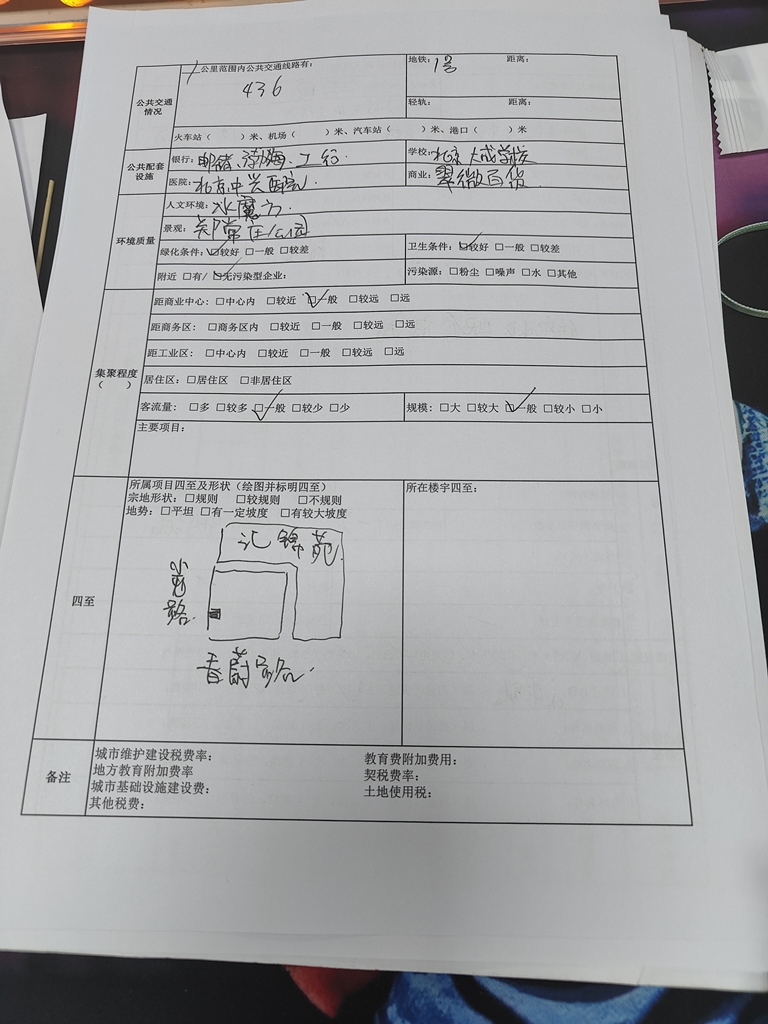 公共交通情况
1公里范围内公共交通线路有:
436
地铁: 1号 距离:
轻轨: 距离:
火车站( )米、机场( )米、汽车站( )米、港口( )米
公共配套设施
银行: 邮储、渤海、工行.
学校: 北京大成学校
医院: 北京中兴医院.
商业: 翠微百货
环境质量
人文环境: 水魔方.
景观:
绿化条件: ☑较好 □一般 □较差
卫生条件: ☑较好 □一般 □较差
附近 □有/ ☑无污染型企业:
污染源: □粉尘 □噪声 □水 □其他
集聚程度( )
距商业中心: □中心内 □较近 ☑一般 □较远 □远
距商务区: □商务区内 □较近 □一般 □较远 □远
距工业区: □中心内 □较近 □一般 □较远 □远
居住区: □居住区 □非居住区
客流量: □多 □较多 ☑一般 □较少 □少
规模: □大 □较大 ☑一般 □较小 □小
主要项目:
四至
所属项目四至及形状(绘图并标明四至)
宗地形状: □规则 □较规则 □不规则
地势: □平坦 □有一定坡度 □有较大坡度
所在楼宇四至:
汇锦苑
小屯路
备注
城市维护建设税费率: 教育费附加费用:
地方教育附加费率 契税费率:
城市基础设施建设费: 土地使用税:
其他税费: